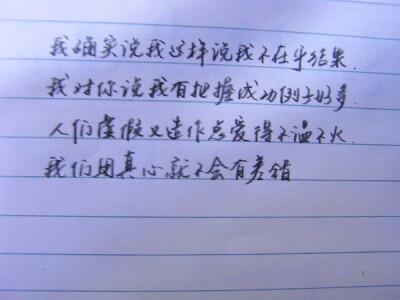 我确实说我这样说我不在乎结果.
我对你说我有把握成功例子好多.
人们虚假又造作总爱得不温不火.
我们用真心就不会有差错